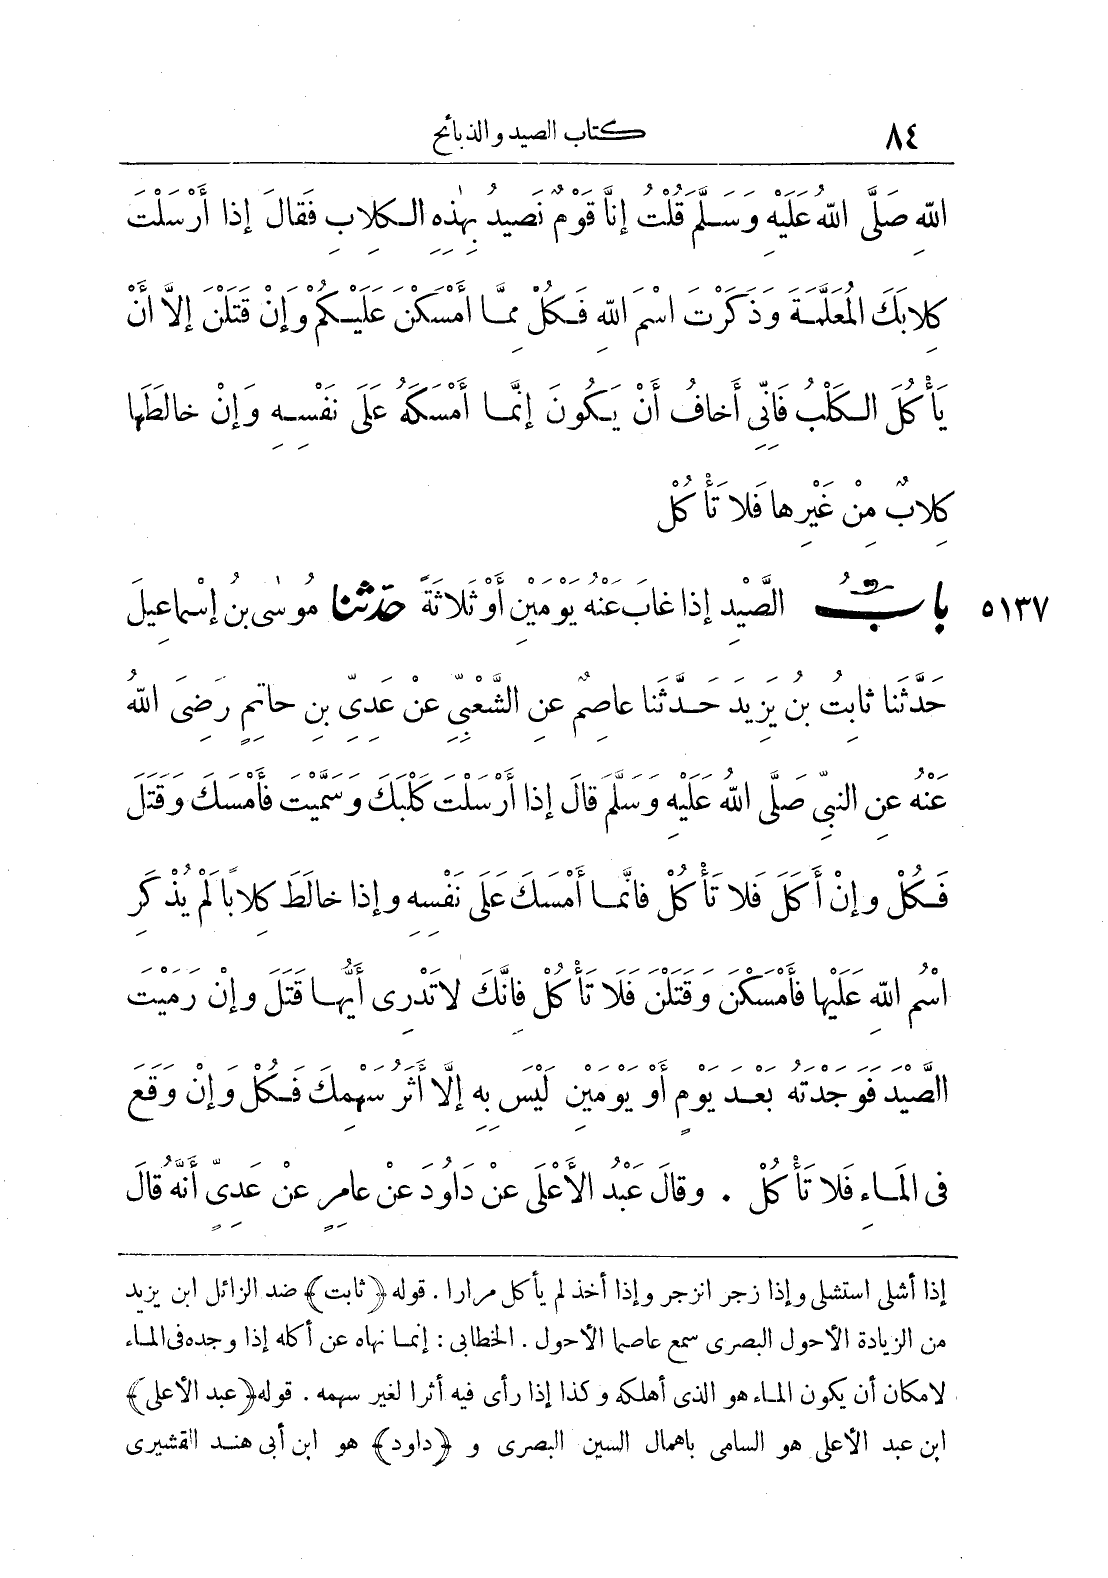 ٨٤
كتاب الصيد والذبائح
اللّهِ صَلَّى اللّهُ عَلَيْهِ وَسَلَّمَ قُلْتُ إِنَّا قَوْمٌ نَصِيدُ بِهٰذِهِ الْكِلَابِ فَقَالَ إِذَا أَرْسَلْتَ
كِلَابَكَ الْمُعَلَّمَةَ وَذَكَرْتَ اسْمَ اللّهِ فَكُلْ مِمَّا أَمْسَكْنَ عَلَيْكُمْ وَإِنْ قَتَلْنَ إِلَّا أَنْ
يَأْكُلَ الْكَلْبُ فَإِنِّي أَخَافُ أَنْ يَكُونَ إِنَّمَا أَمْسَكَهُ عَلَى نَفْسِهِ وَإِنْ خَالَطَهَا
كِلَابٌ مِنْ غَيْرِهَا فَلَا تَأْكُلْ
٥١٣٧ بابُ الصَّيْدِ إِذَا غَابَ عَنْهُ يَوْمَيْنِ أَوْ ثَلَاثَةً حدّثنا مُوسٰى بْنُ إِسْمَاعِيلَ
حَدَّثَنَا ثَابِتُ بْنُ يَزِيدَ حَدَّثَنَا عَاصِمٌ عَنِ الشَّعْبِيِّ عَنْ عَدِيِّ بْنِ حَاتِمٍ رَضِىَ اللّهُ
عَنْهُ عَنِ النَّبِيِّ صَلَّى اللّهُ عَلَيْهِ وَسَلَّمَ قَالَ إِذَا أَرْسَلْتَ كَلْبَكَ وَسَمَّيْتَ فَأَمْسَكَ وَقَتَلَ
فَكُلْ وَإِنْ أَكَلَ فَلَا تَأْكُلْ فَانَّمَا أَمْسَكَ عَلَى نَفْسِهِ وَإِذَا خَالَطَ كِلَابًا لَمْ يُذْكَرِ
اسْمُ اللّهِ عَلَيْهَا فَأَمْسَكْنَ وَقَتَلْنَ فَلَا تَأْكُلْ فَانَّكَ لَا تَدْرِى أَيُّهَا قَتَلَ وَإِنْ رَمَيْتَ
الصَّيْدَ فَوَجَدْتَهُ بَعْدَ يَوْمٍ أَوْ يَوْمَيْنِ لَيْسَ بِهِ إِلَّا أَثَرُ سَهْمِكَ فَكُلْ وَإِنْ وَقَعَ
فى الْمَاءِ فَلَا تَأْكُلْ . وَقَالَ عَبْدُ الْأَعْلَى عَنْ دَاوُدَ عَنْ عَامِرٍ عَنْ عَدِيٍّ أَنَّهُ قَالَ
إذا أشلى استشلى وإذا زجر انزجر وإذا أخذ لم يأكل مرارا . قوله ﴿ثابت﴾ ضد الزائل ابن يزيد
من الزيادة الأحول البصرى سمع عاصما الأحول . الخطابى : إنما نهاه عن أكله إذا وجده فى الماء
لامكان أن يكون الماء هو الذى أهلكه وكذا إذا رأى فيه أثرا لغير سهمه . قوله ﴿عبد الأعلى﴾
ابن عبد الأعلى هو السامى باهمال السين البصرى و ﴿داود﴾ هو ابن أبى هند القشيرى